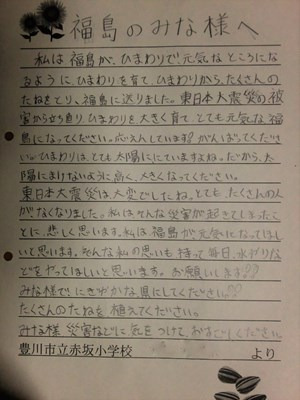 福島のみな様へ
私は、福島が、ひまわりで!元気なところにな
るように、ひまわりを育て、ひまわりから、たくさんの
たねをとり、福島に送りました。東日本大震災の被
害から立ち直り、ひまわりを大きく育て、とても元気な福
島になってください。応えんしています!がんばってくださ
い。ひまわりは、とても太陽ににていますよね。だから、太
陽にまけないように高く、大きくなってください。
東日本大震災は、大変でしたね。とても、たくさんの人
がなくなりました。私はそんな災害が起きてしまったこ
とに、悲しく思います。私は、福島が元気になってほし
いと思います。そんな私の思いも、持って毎日、水やりな
どをやってほしいと思います。お願いします♡♡
みな様で!にぎやかな、県にしてください♡♡
たくさんのたねを植えてください。
みな様災害などに気をつけて、おすごしください。
豊川市立赤坂小学校 より